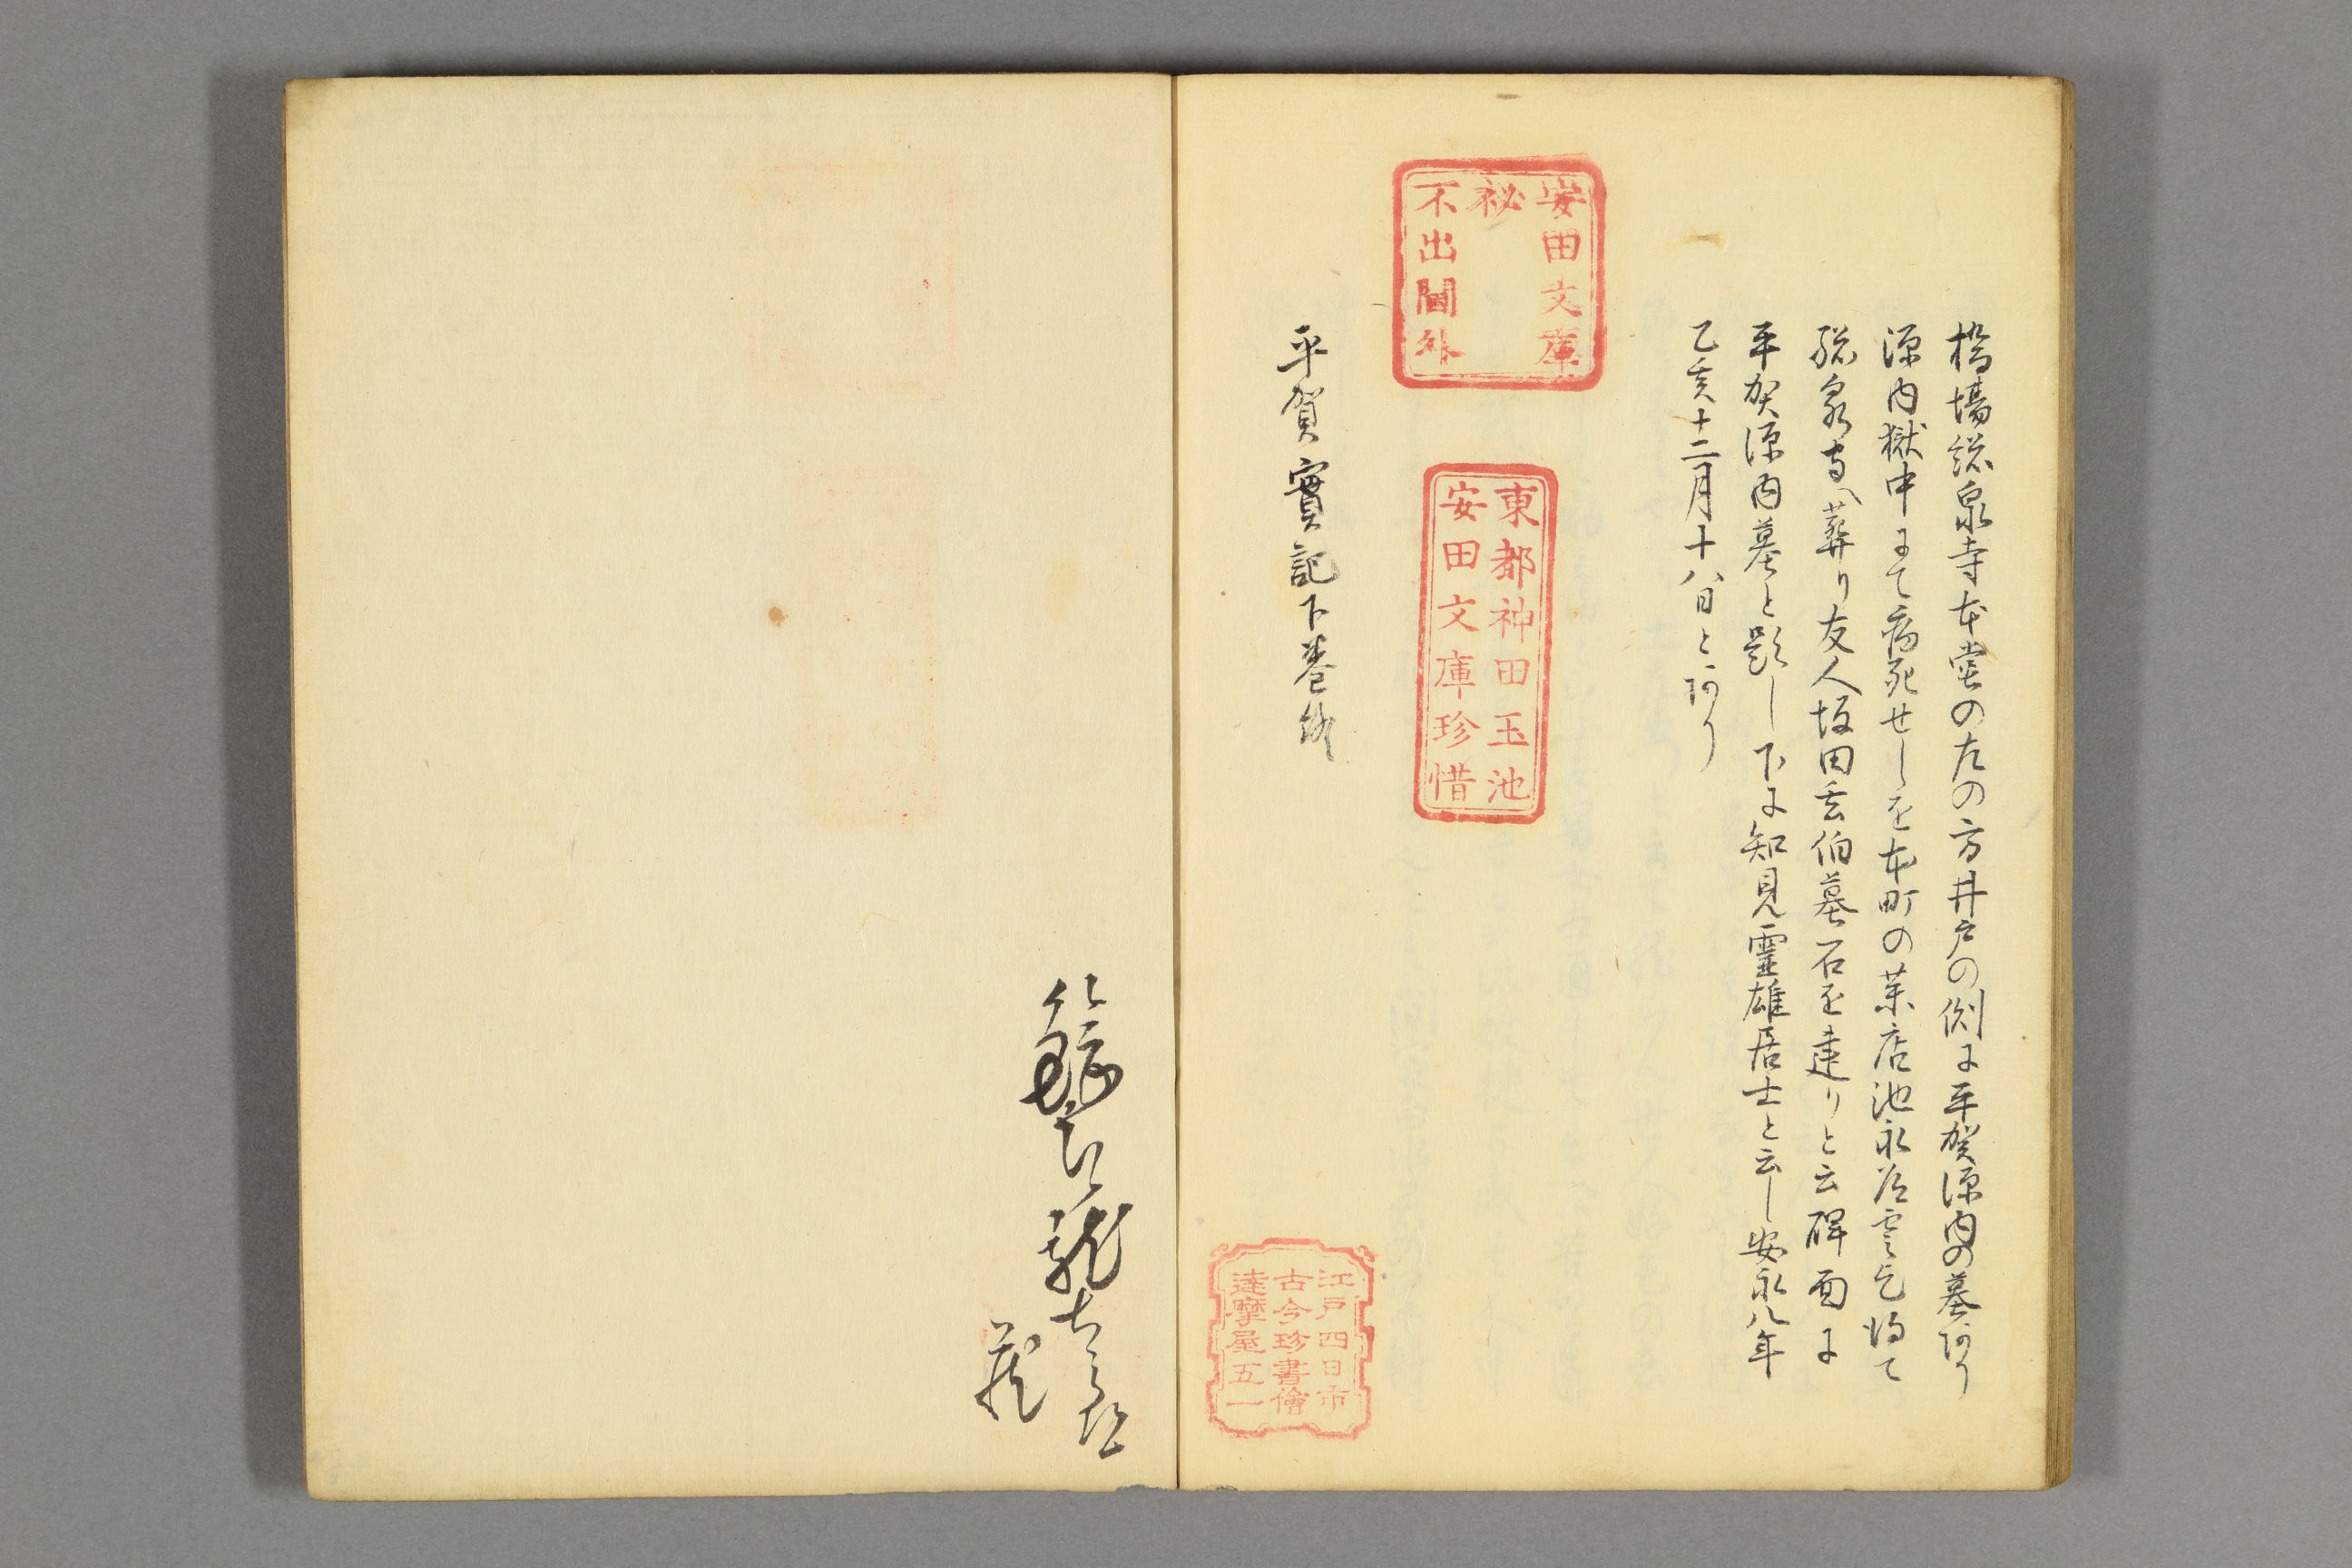 橋場総泉寺本堂の左の方井戸の側に平賀源内の墓あり
源内獄中にて病死せしを本町の薬店池永 乞得て
総泉寺へ葬り友人坂田玄伯墓石を建りと云碑面に
平賀源内墓と影し下に知見霊雄居士と云し安永八年
乙亥十二月十八日と阿り
安田文庫
秘
不出閫外
東都神田玉池
安田文庫珍惜
平賀實記下巻終
江戸四日市
古今珍書儈
達摩屋五一
蔵